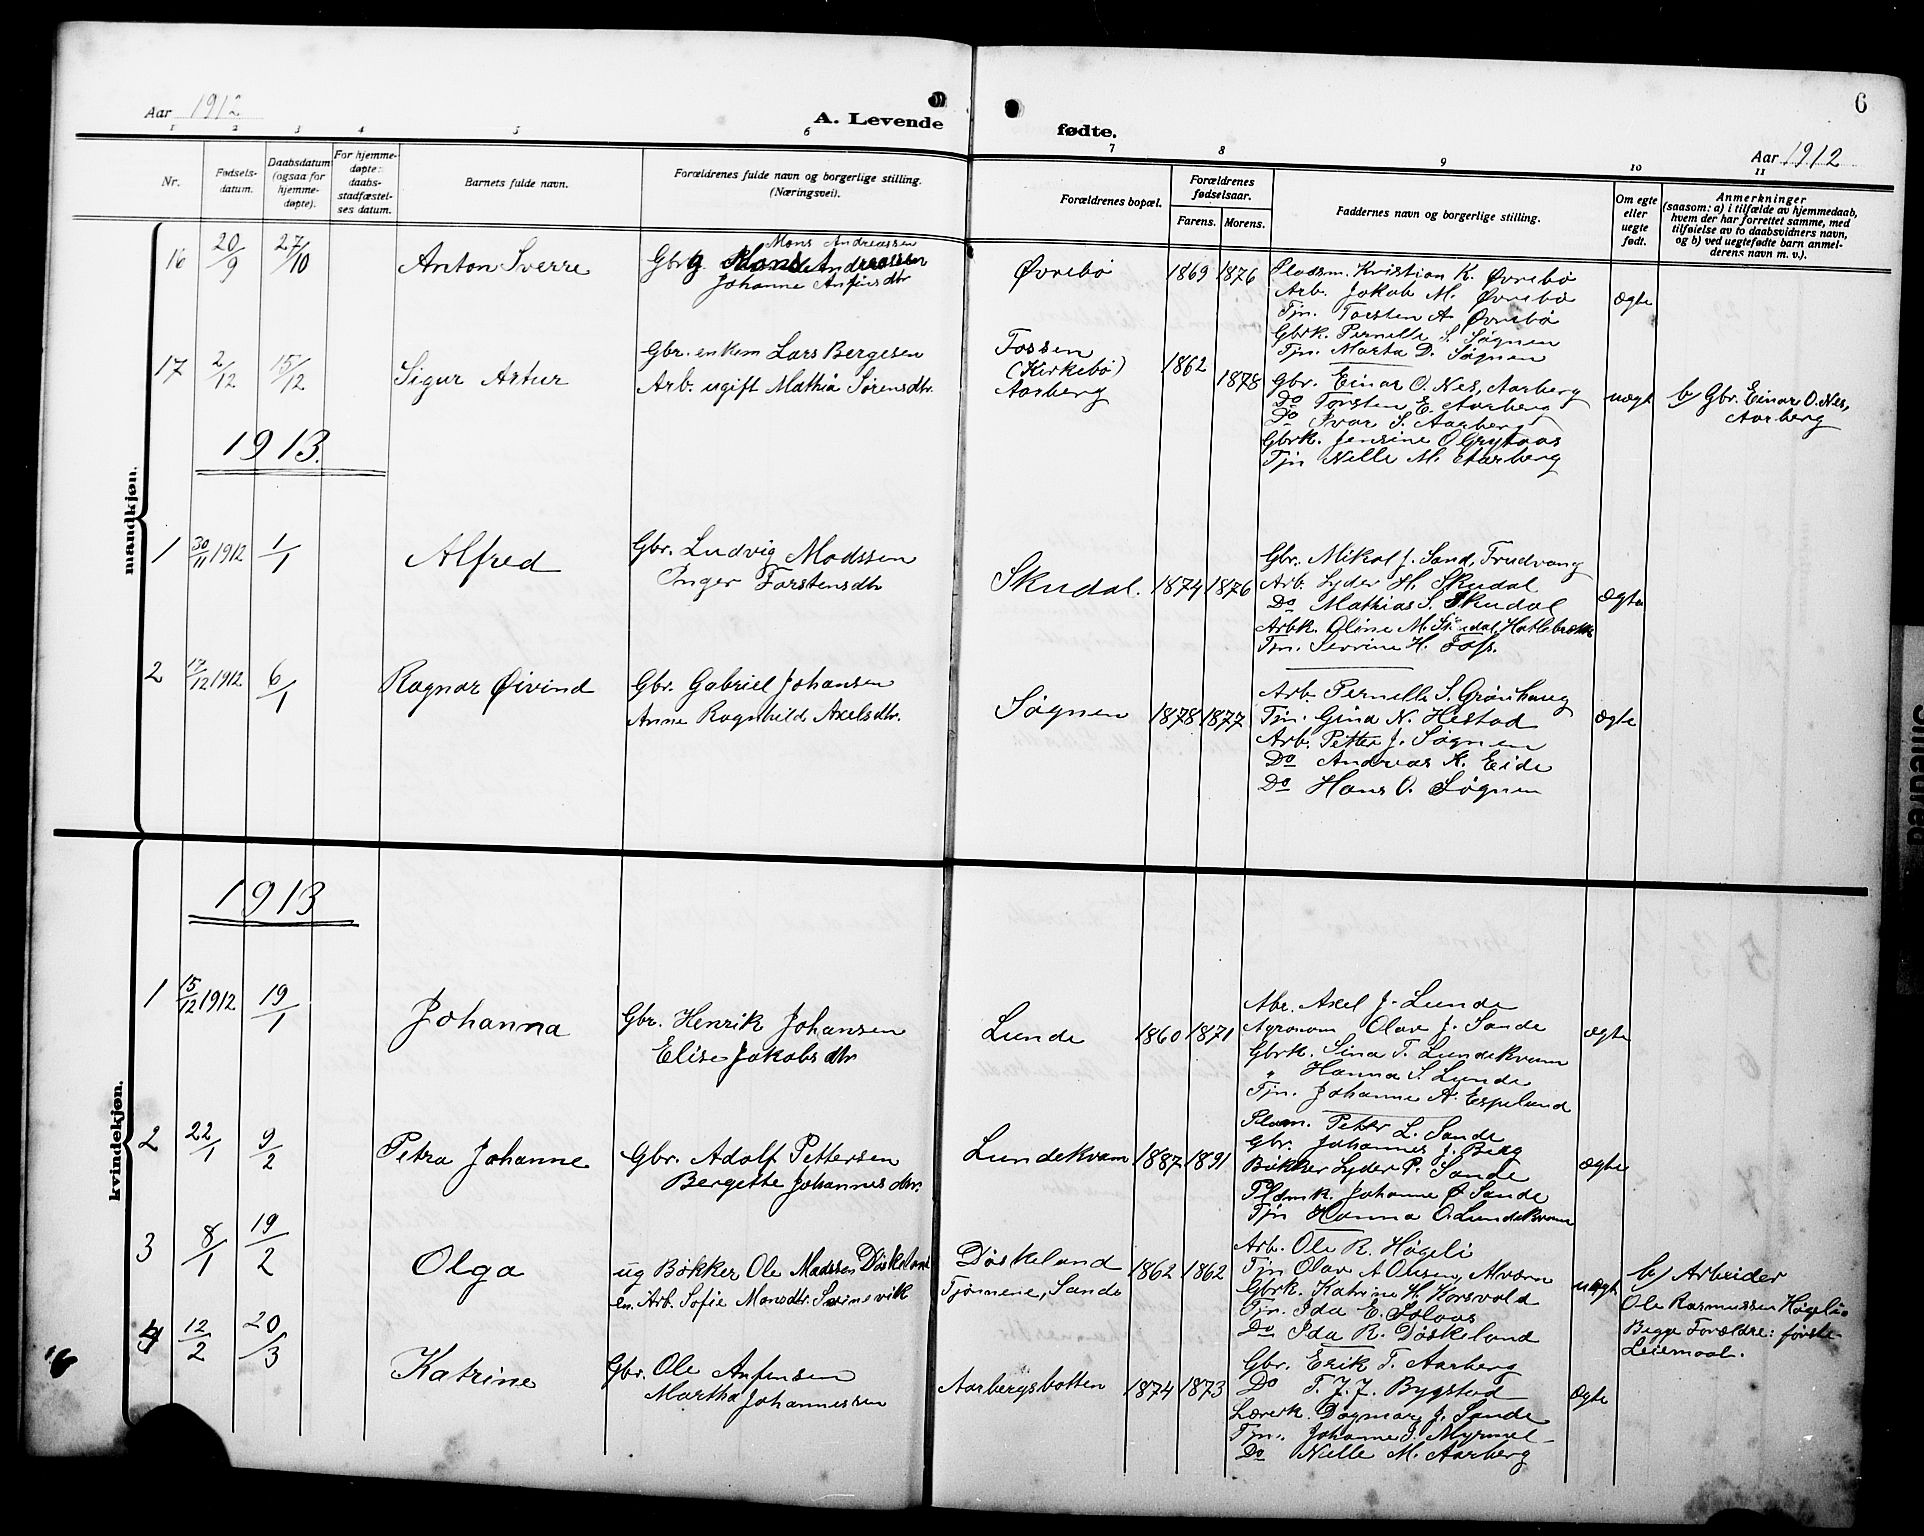 6
Aar 1912
A. Levende fødte.
Aar 1912
1 2 3 4 5 6 7 8 9 10 11
Nr.
Fødsels-
datum.
Daabsdatum
(ogsaa for
hjemme-
døpte).
For hjemme-
døpte:
daabs-
stadfæstel-
ses datum.
Barnets fulde navn.
Forældrenes fulde navn og borgerlige stilling.
(Næringsvei).
Forældrenes bopæl.
Forældrenes
fødselsaar.
Farens. Morens.
Faddernes navn og borgerlige stilling.
Om egte
eller
uegte
født.
Anmerkninger
(saasom: a) i tilfælde av hjemmedaab,
hvem der har forrettet samme, med
tilføielse av to daabsvidners navn,
og b) ved uegtefødte barn anmel-
derens navn m. v.).
mandkjøn.
16 20/9 27/10 Anton Sverre
Mons Andreassen
Gbr. Mons Andreassen
Johanne Anfinsdtr
Øvrebø 1869 1876
Pladsm. Kristian K. Øvrebø
Arb. Jakob M. Øvrebø
Tjn. Torsten A. Øvrebø
Gbrk. Pernille S. Søgnen
Tjn. Marta D. Søgnen
ægte
17 2/12 15/12 Sigur Artur
Gbr. enkem Lars Bergesen
Arb. ugift Mathia Sørensdtr.
Fossen
(Kirkebø)
Aarberg
1862
1878
Gbr. Einar O. Nes, Aarberg
Do Torsten E. Aarberg
Do Ivar S. Aarberg
Gbrk. Jensine O Grytaas
Tjn Nille M. Aarberg
uægt
b/ Gbr. Einar O. Nes,
Aarberg
1913.
1 30/11 1912 1/1 Alfred
Gbr. Ludvig Madssen
Inger Torstensdtr
Skudal. 1874 1876
Gbr. Mikal J. Sand, Trudvang
Arb. Lyder H. Skudal
Do Mathias S. Skudal
Arbk. Oline M. Skudal, Hatlebrække
Tjn. Severine H. Foss.
Ægte
2 17/12 1912 6/1 Ragnar Øivind
Gbr. Gabriel Johansen
Anne Ragnhild Axelsdtr.
Søgnen 1878 1877
Arb. Pernille S. Grønhaug
Tjn. Gina N. Hestad
Arb. Petter J. Søgnen
Do Andreas K. Eide
Do Hans O. Søgnen
ægte
kvindekjøn.
1913
1 15/12 1912 19/1 Johanna
Gbr. Henrik Johansen
Elise Jakobsdtr.
Lunde 1860 1871
Gbr. Axel J. Lunde
Agronom Olav J. Sande
Gbrk. Sina T. Lundekvam
" Hanna S. Lunde
Tjn. Johanne A. Espeland
ægte
2 22/1 9/2 Petra Johanne
Gbr. Adolf Pettersen
Bergette Johannesdtr.
Lundekvam 1887 1891
Pladsm. Petter L. Sande
Gbr. Johannes J. Berg
Bøkker Lyder P. Sande
Pldmk. Johanne Ø Sande
Tjn Hanna O. Lundekvam
ægte
3 8/1 19/2 Olga
ug Bøkker Ole Madssen Døskeland
en. Arb. Sofie Monsdtr. Svinevik
Døskeland
Tjørnene, Sande
1862 1862
Arb. Ole R. Høgeli
Tjn Olav A Olsen, Alværn
Gbrk. Katrine H. Horsvold
Tjn. Ida E. Solaas
Do Ida R. Døskeland
uægt
b/ Arbeider
Ole Rasmussen Høgeli.
Begge Forældre: første
Leiemaal.
4 12/2 20/3 Katrine
Gbr. Ole Anfensen
Martha Johannessen
Aarbergsbotten 1874 1873
Gbr. Erik T. Aarberg
Do T. J. J. Bygstad
Lærerk. Dagmar J. Sande
Tjn. Johanne I. Myrmel
Do Nille M. Aarberg
Ægte